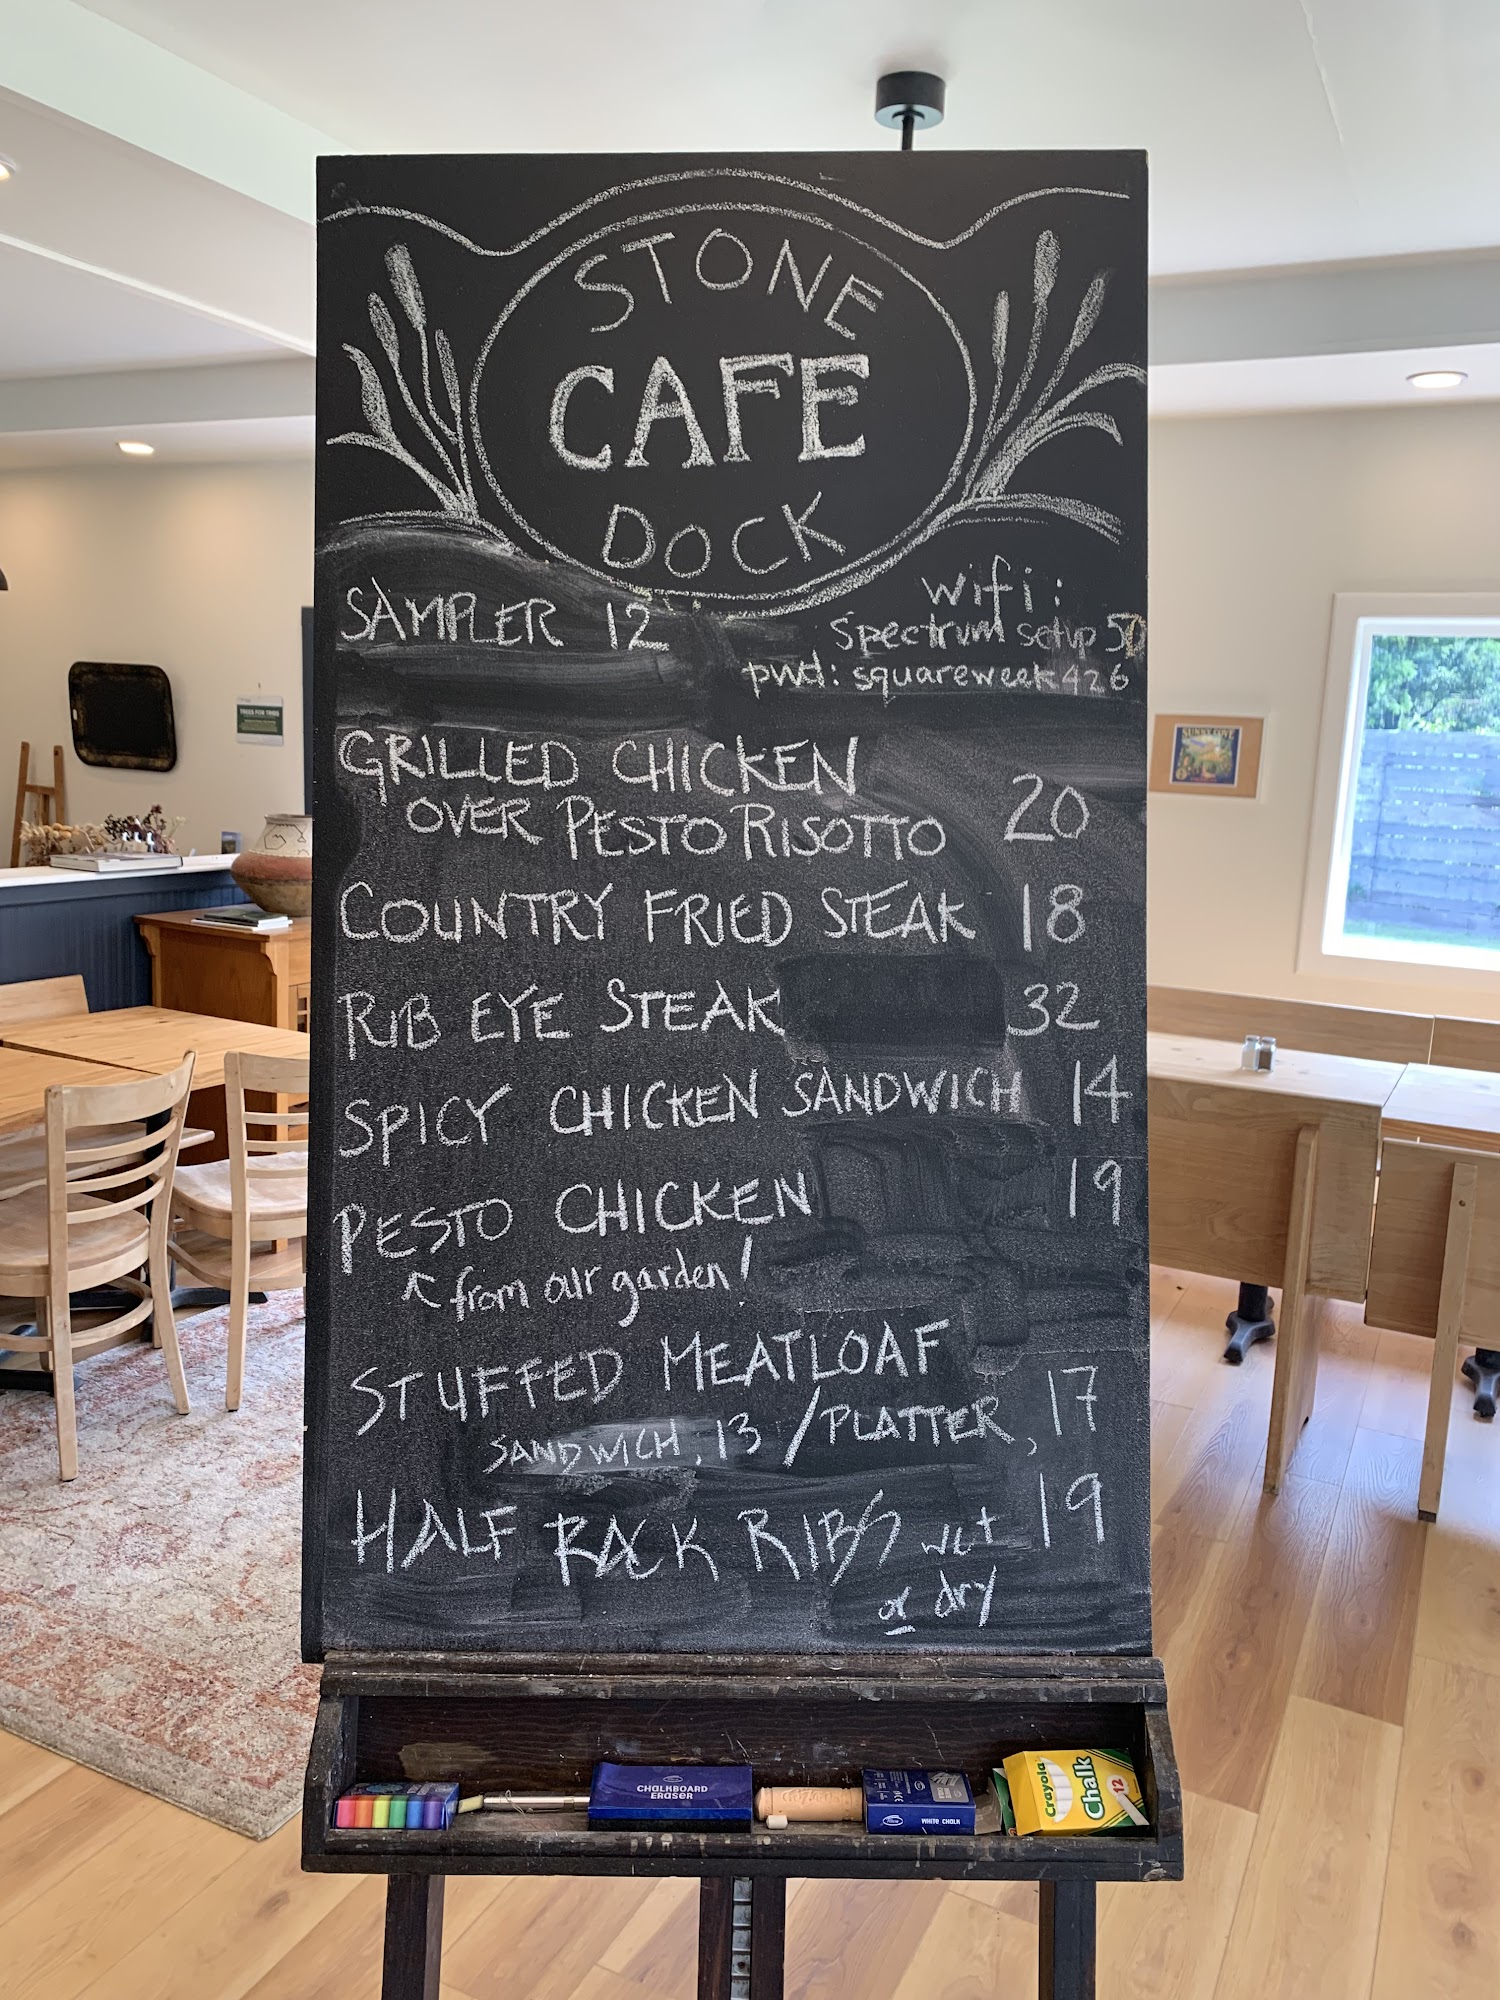 STONE
CAFE
DOCK
wifi:
Spectrum setup 50
pwd: squareweek426
SAMPLER 12
GRILLED CHICKEN
OVER PESTO RISOTTO 20
COUNTRY FRIED STEAK 18
RIB EYE STEAK 32
SPICY CHICKEN SANDWICH 14
PESTO CHICKEN 19
from our garden!
STUFFED MEATLOAF
SANDWICH, 13 / PLATTER, 17
HALF RACK RIBS wet 19
or dry
CHALKBOARD
ERASER
WHITE CHALK
Crayola
Chalk
12
TREES FOR TRIBS
SUNNY COVE